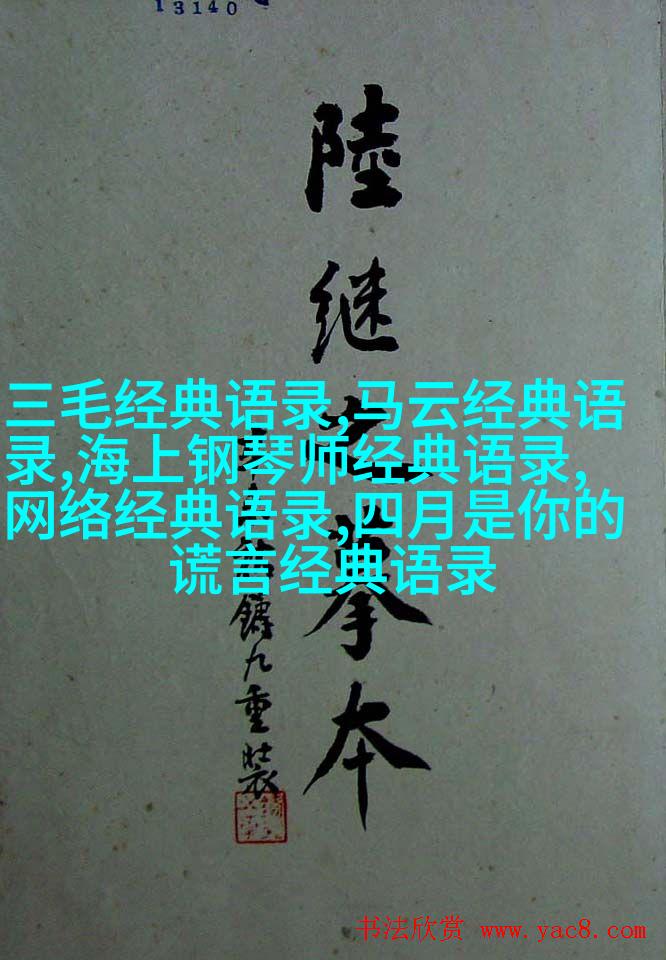 13140
陸继之摹本
三毛经典语录,马云经典语
录,海上钢琴师经典语录,
网络经典语录,四月是你的
谎言经典语录
鑄九重裝
书法欣赏 www.yac8.com